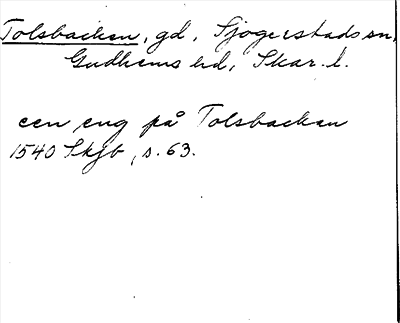 Tolsbacken, gd, Sjögerstads sn,
Gudhems hd, Skar. l.
een eng på Tolsbackan
1540 Skjb, s. 63.